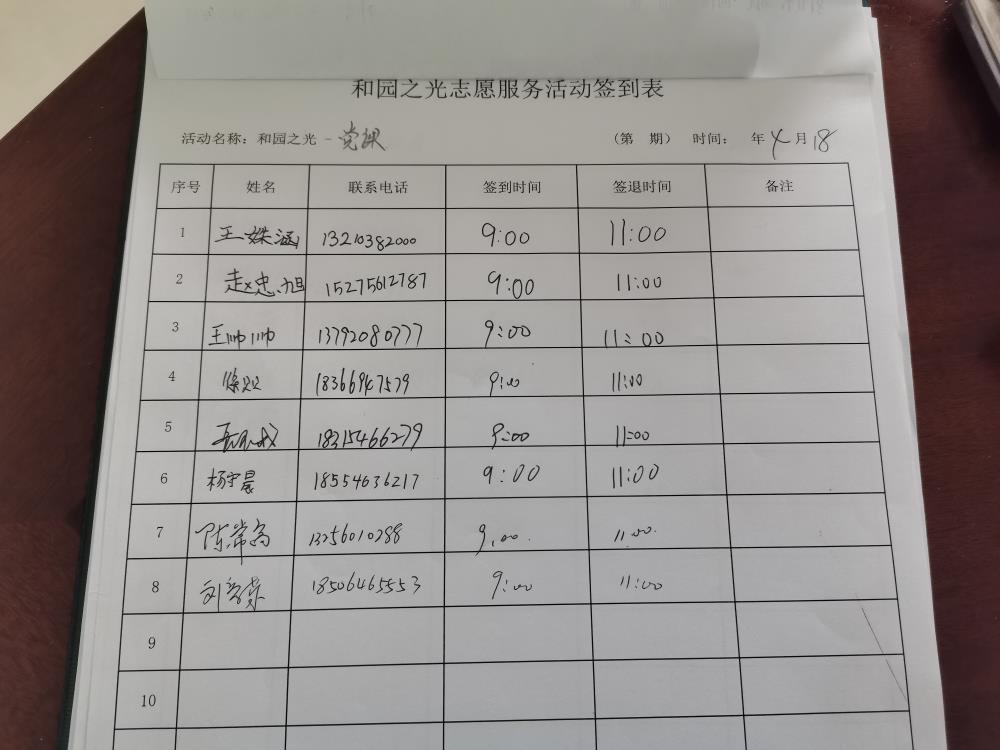 和园之光志愿服务活动签到表
活动名称：和园之光 - 党课 （第 期） 时间： 年 4 月 18
序号 姓名 联系电话 签到时间 签退时间 备注
1 王姝涵 13210382000 9:00 11:00
2 赵忠旭 15275612787 9:00 11:00
3 王帅帅 13792080777 9:00 11:00
4 18366947579 9:00 11:00
5 18315466279 9:00 11:00
6 杨宇晨 18554636217 9:00 11:00
7 陈常高 13256010288 9:00 11:00
8 18506465553 9:00 11:00
9
10